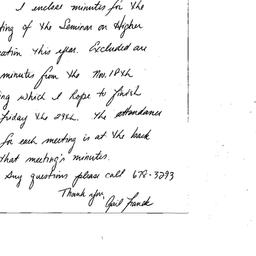 I enclose minutes for the
ting of the Seminar on Higher
cation this year. Excluded are
minutes from the Nov. 18th
ng which I hope to finish
Friday the 29th. The attendance
for each meeting is at the back
that meeting's minutes.
Any questions please call 678-3293
Thank you,
April Franck